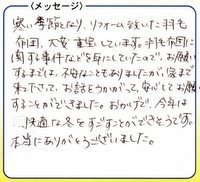 (メッセージ)
寒い季節となり、リフォームをした羽毛
布団、大変重宝しています。羽毛布団に
関する事件などを耳にしていたので、お願い
するまでは、不安なこともありましたが、家まで
来て下さって、お話をうかがって、安心してお願い
することができました。おかげで、今年は
快適な冬をすごすことができそうです。
本当にありがとうございました。